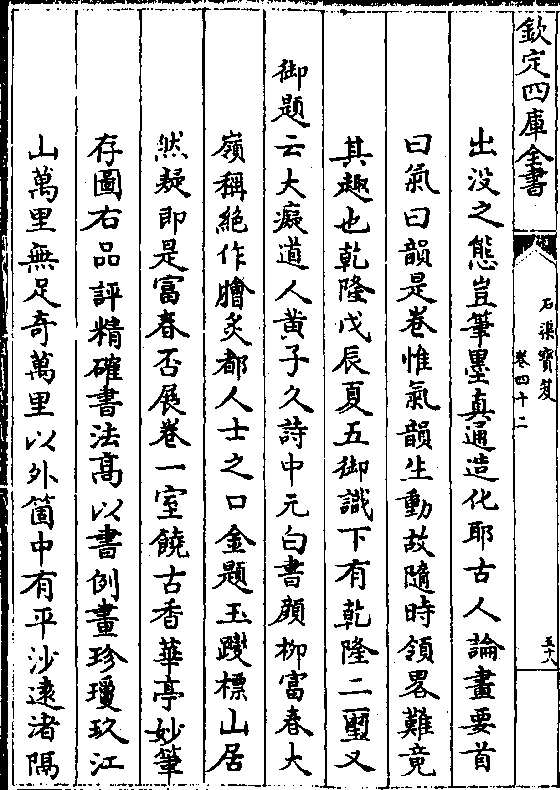 欽定四庫全書
石渠寶笈
卷四十二
五十八
出没之態豈筆墨真通造化耶古人論畫要首
曰氣曰韻是卷惟氣韻生動故隨時領畧難竟
其趣也乾隆戊辰夏五御識下有乾隆二璽又
御題云大癡道人黄子久詩中元白書顔柳富春大
嶺稱絶作膾炙都人士之口金題玉躞標山居
然疑即是富春否展卷一室饒古香華亭妙筆
存圖右品評精確書法髙以書例畫珍瓊玖江
山萬里無足奇萬里以外箇中有平沙逺渚隔